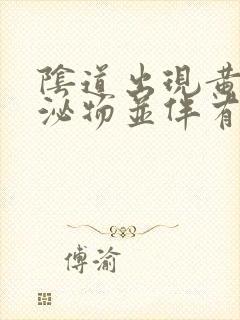 陰道出現黃
泌物並伴有
傅渝